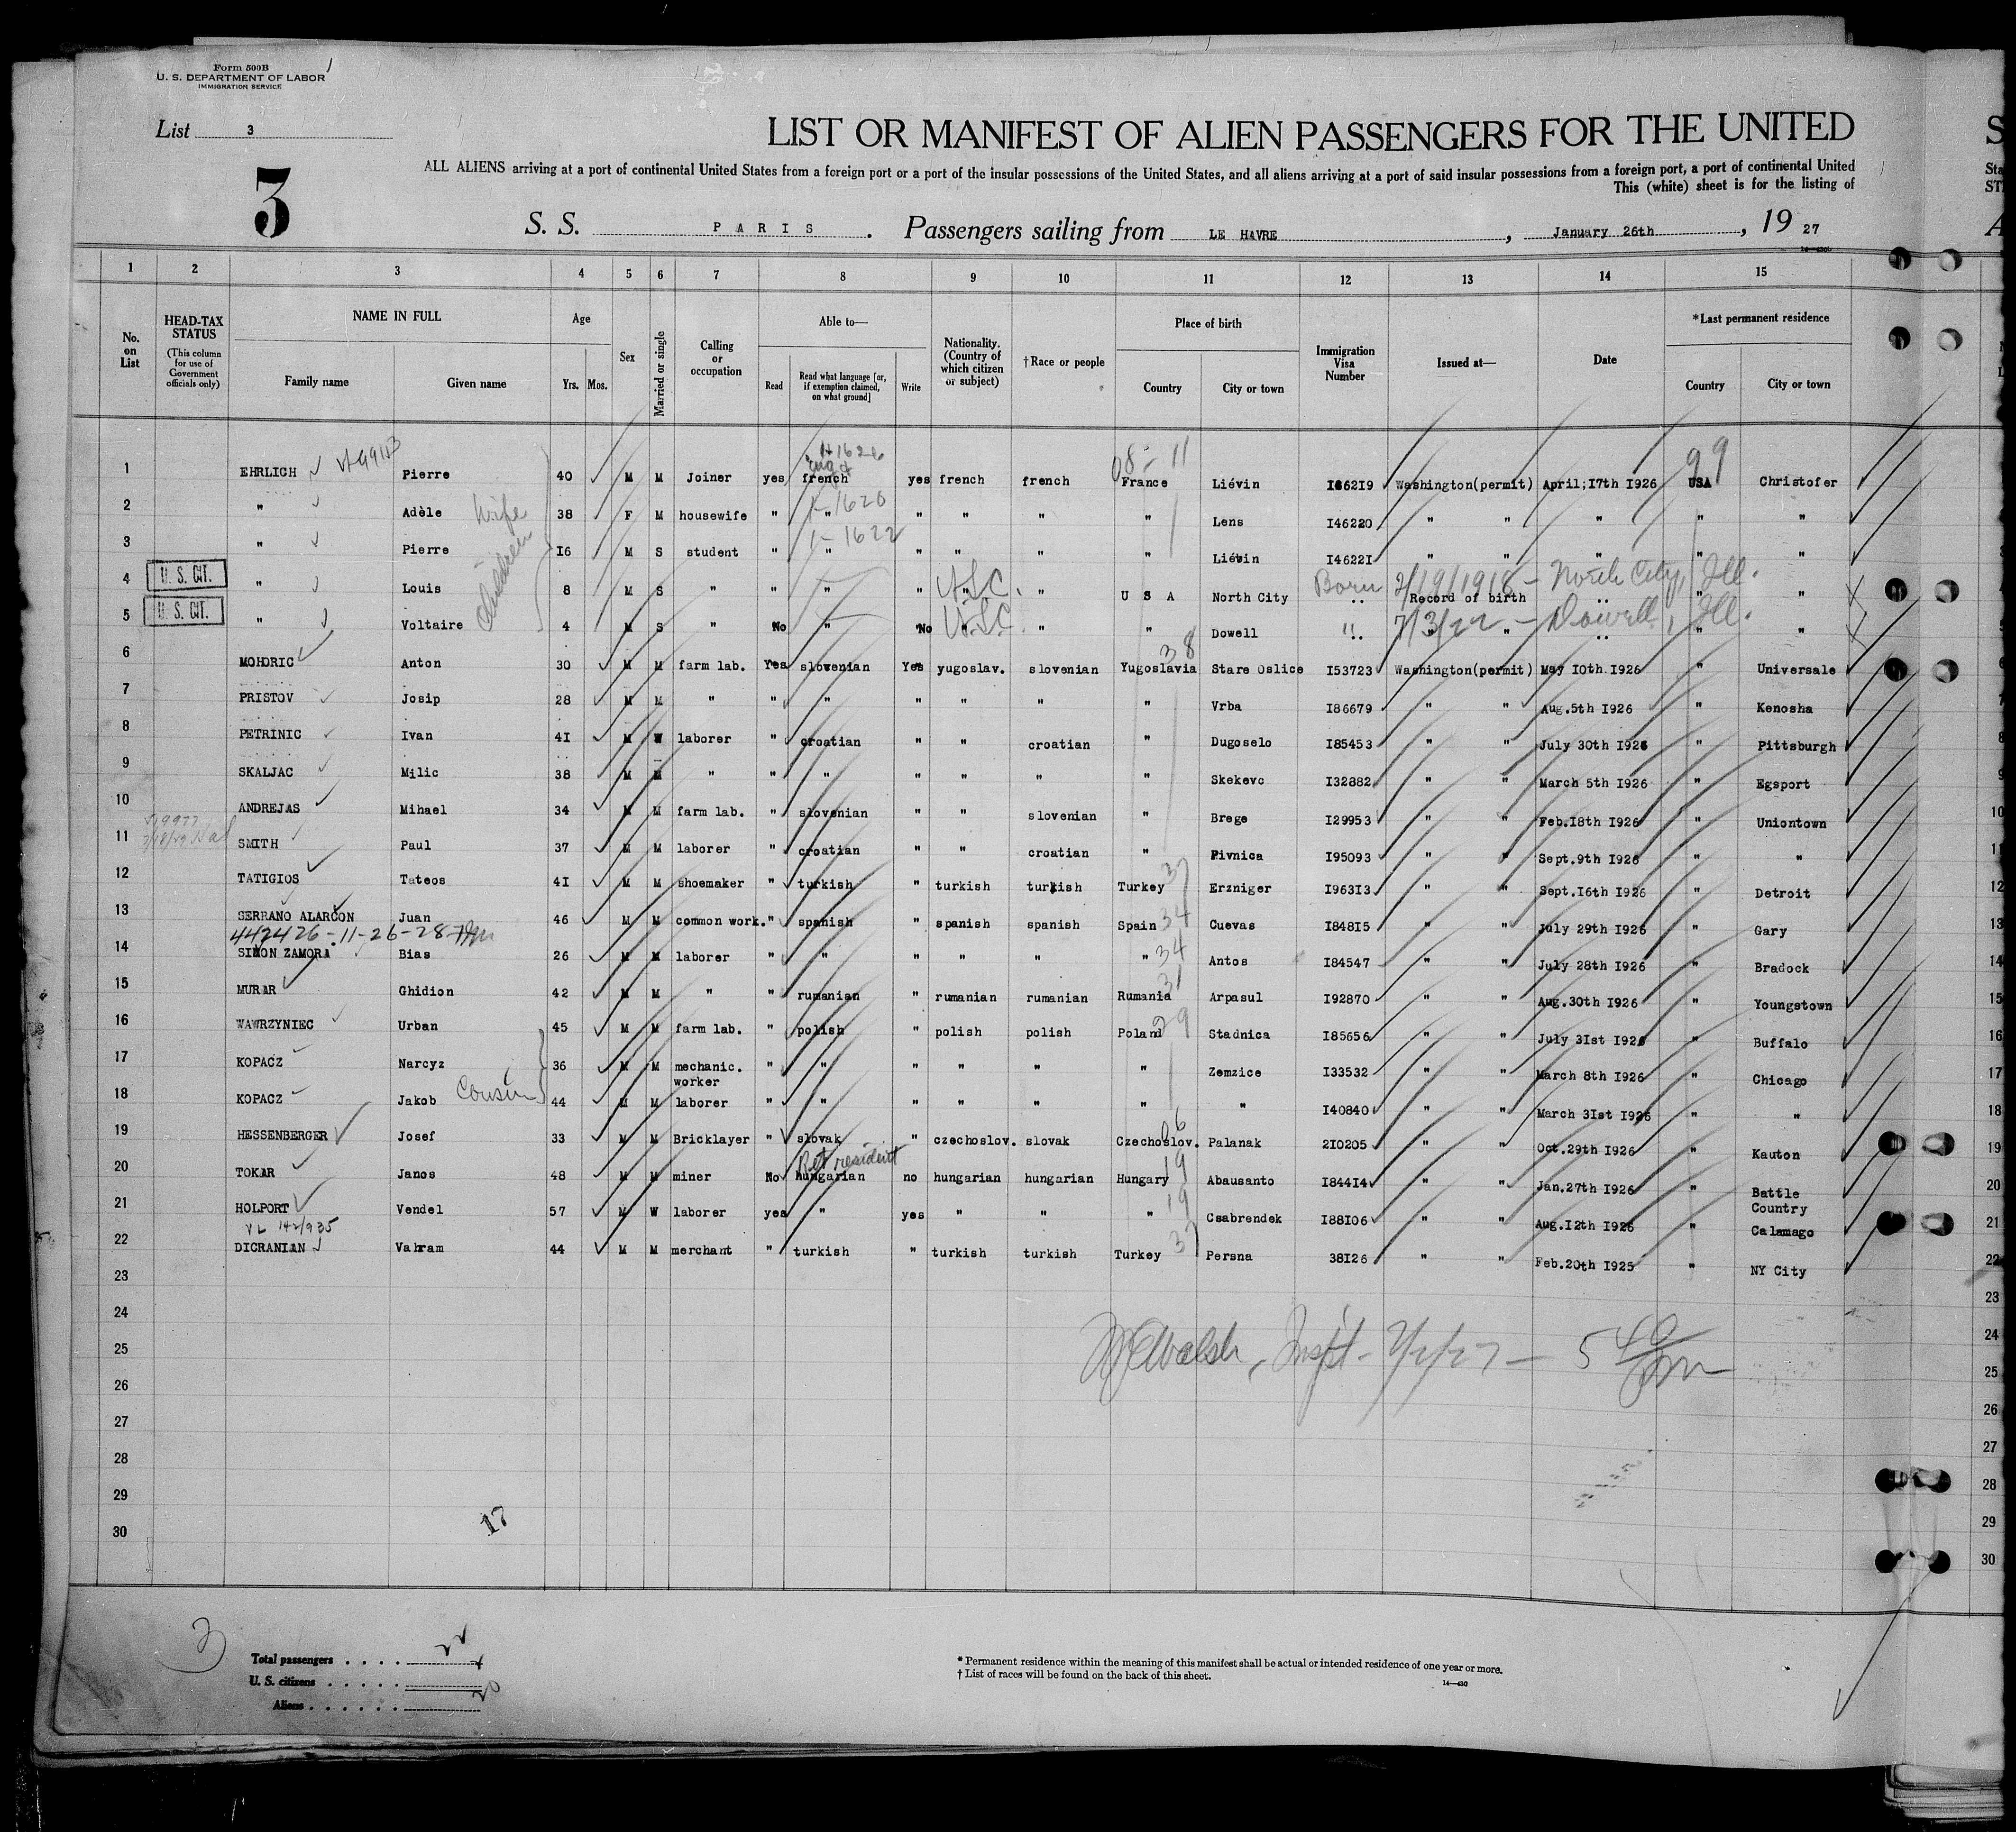 Form 500B
U. S. DEPARTMENT OF LABOR
IMMIGRATION SERVICE
List 3
3
LIST OR MANIFEST OF ALIEN PASSENGERS FOR THE UNITED
ALL ALIENS arriving at a port of continental United States from a foreign port or a port of the insular possessions of the United States, and all aliens arriving at a port of said insular possessions from a foreign port, a port of continental United
This (white) sheet is for the listing of
S. S. PARIS. Passengers sailing from LE HAVRE, January 26th, 19 27
1 2 3 4 5 6 7 8 9 10 11 12 13 14 15
No. on List
HEAD-TAX STATUS (This column for use of Government officials only)
NAME IN FULL Family name Given name
Age Yrs. Mos.
Sex
Married or single
Calling or occupation
Able to— Read Read what language [or, if exemption claimed, on what ground] Write
Nationality. (Country of which citizen or subject)
†Race or people
Place of birth Country City or town
Immigration Visa Number
Issued at—
Date
*Last permanent residence Country City or town
08-11 99
1 EHRLICH Pierre 40 M M Joiner yes french yes french french France Liévin I462I9 Washington(permit) April;I7th I926 USA Christofer
2 " Adèle Wife 38 F M housewife " " " " " " Lens I46220 " " " " "
3 " Pierre Children I6 M S student " " " " " " Liévin I4622I " " " " "
4 U. S. CIT. " Louis 8 M S " " " " U.S.C. " U S A North City Born 2/19/1918 - North City, Ill. Record of birth " "
5 U. S. CIT. " Voltaire 4 M S " No " No U.S.C. " " Dowell " 7/3/22 - Dowell, Ill. " "
6 MOHORIC Anton 30 M M farm lab. Yes slovenian Yes yugoslav. slovenian Yugoslavia 38 Stare Oslice I53723 Washington(permit) May I0th I926 " Universale
7 PRISTOV Josip 28 M M " " " " " " " Vrba I86679 " " Aug.5th I926 " Kenosha
8 PETRINIC Ivan 4I M W laborer " croatian " " croatian " Dugoselo I85453 " " July 30th I926 " Pittsburgh
9 SKALJAC Milic 38 M M " " " " " " " Skekevc I32882 " " March 5th I926 " Egsport
10 ANDREJAS Mihael 34 M M farm lab. " slovenian " " slovenian " Brege I29953 " " Feb.I8th I926 " Uniontown
11 SMITH Paul 37 M M laborer " croatian " " croatian " Pivnica I95093 " " Sept.9th I926 " "
12 TATIGIOS Tateos 4I M M shoemaker " turkish " turkish turkish Turkey 37 Erzniger I963I3 " " Sept.I6th I926 " Detroit
13 SERRANO ALARCON Juan 46 M M common work. " spanish " spanish spanish Spain 34 Cuevas I848I5 " " July 29th I926 " Gary
442426-11-26-28
14 SIMON ZAMORA Bias 26 M M laborer " " " " " " 34 Antos I84547 " " July 28th I926 " Bradock
15 MURAR Ghidion 42 M M " " rumanian " rumanian rumanian Rumania 31 Arpasul I92870 " " Aug.30th I926 " Youngstown
16 WAWRZYNIEC Urban 45 M M farm lab. " polish " polish polish Poland 29 Stadnica I85656 " " July 3Ist I926 " Buffalo
17 KOPACZ Narcyz 36 M M mechanic. worker " " " " " " Zemzice I33532 " " March 8th I926 " Chicago
18 KOPACZ Jakob Cousin 44 M M laborer " " " " " " " I40840 " " March 3Ist I926 " "
19 HESSENBERGER Josef 33 M M Bricklayer " slovak " czechoslov. slovak Czechoslov. 06 Palanak 2I0205 " " Oct.29th I926 " Kauton
Ret resident
20 TOKAR Janos 48 M M miner No hungarian no hungarian hungarian Hungary 19 Abausanto I844I4 " " Jan.27th I926 " Battle Country
21 HOLPORT Vendel 57 M W laborer yes " yes " " " 19 Csabrendek I88I06 " " Aug.I2th I926 " Calamago
VL 142/935
22 DICRANIAN Vahram 44 M M merchant " turkish " turkish turkish Turkey 37 Persna 38I26 " " Feb.20th I925 " NY City
23
24
25
26
27
28
29
30
Inspt- 2/2/27 -
17
3
Total passengers . . . . 22
U. S. citizens . . . . .
Aliens . . . . . . 20
* Permanent residence within the meaning of this manifest shall be actual or intended residence of one year or more.
† List of races will be found on the back of this sheet.
14—430